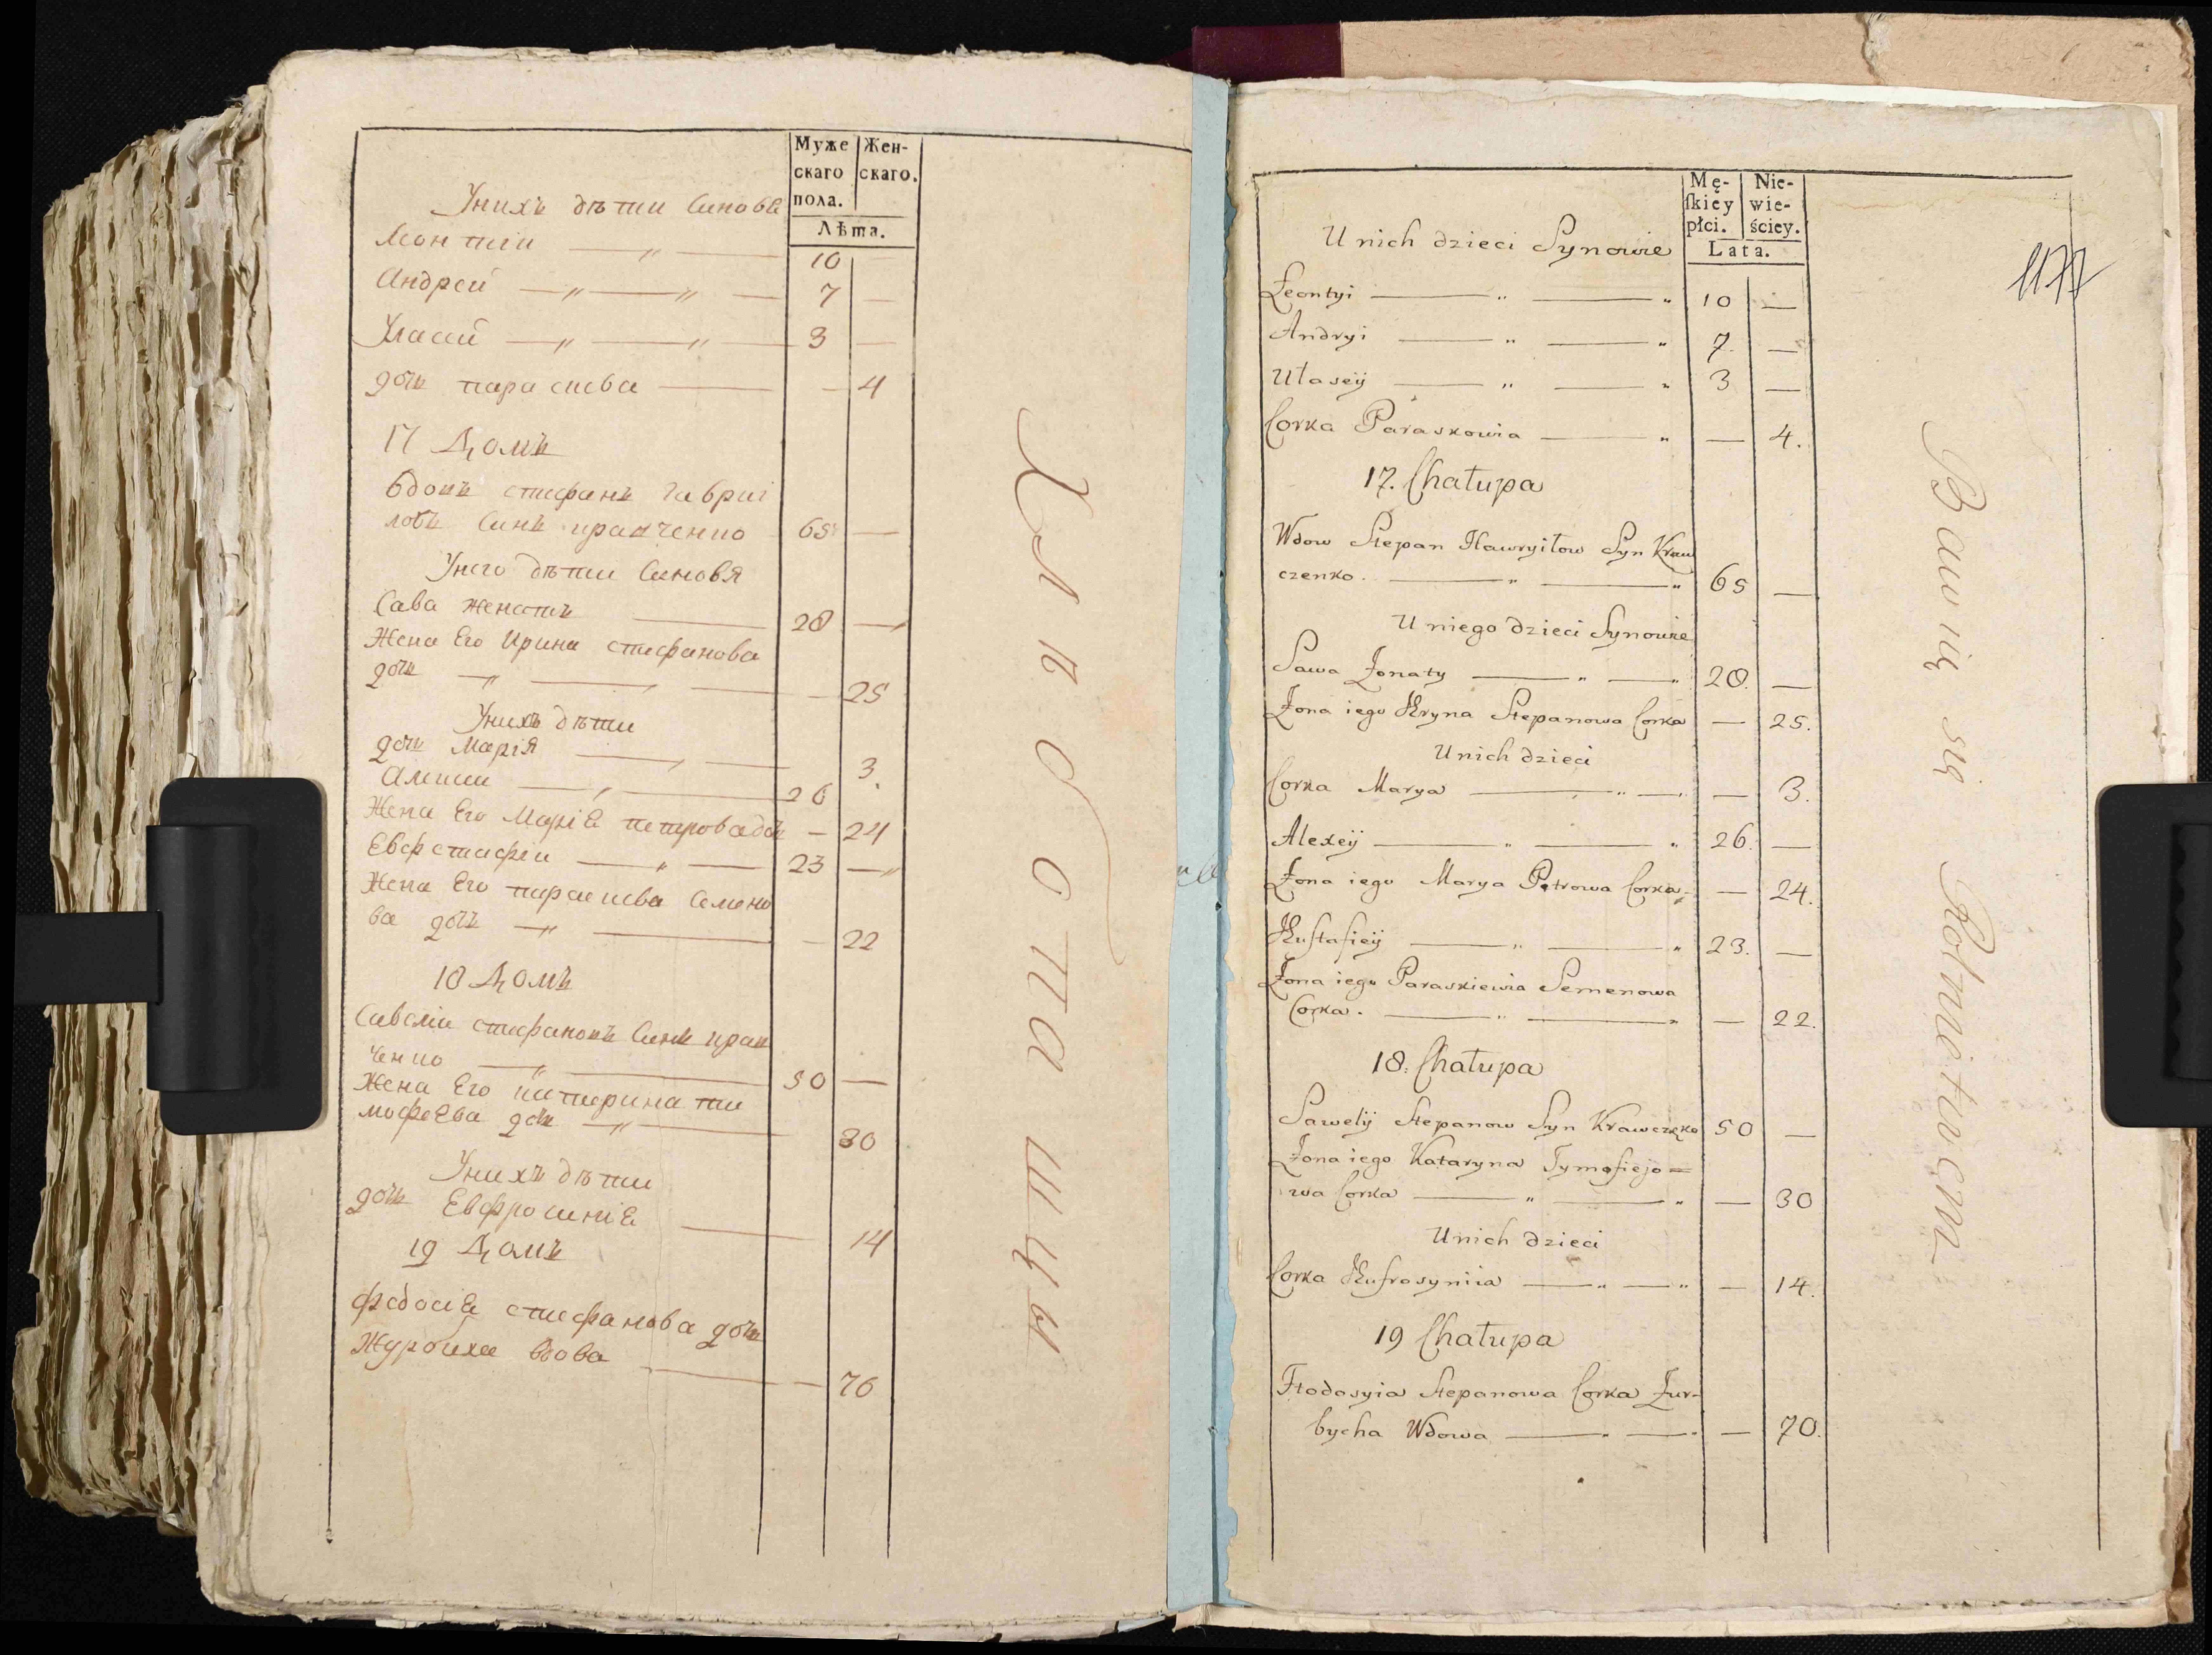 Муже
скаго
пола.
Жен-
скаго.
Лѣта.
Унихъ дѣти Синовя
Леонтіи — „ — 10 —
Андрей — „ — „ — 7 —
Уласій — „ — „ — 3 —
дочь параскева — — 4
17 Домъ
Вдовъ стефанъ гаври
ловъ Синъ кравченко 65 —
Унего дѣти Синовя
Сава женатъ — 28 —
Жена Его Ирина стефанова
дочь — „ — „ — — 25
Унихъ дѣти
дочь Марія — „ — 3.
Алексии — „ — 26
Жена Его Маріа петрова дочь — 24
Евфстафіи — „ — 23 — „
Жена Его параскева Семено
ва дочь — „ — — 22
18 Домъ
Савеліи стефановъ Синъ крав
ченко — „ — 50 —
Жена Его катерина тим
мофеева дочь — „ — 30
Унихъ дѣти
дочь Евфросиніа — 14
19 Домъ
федосіа стефанова дочь
Журбиха вдова — — 70
Хлѣбопашцы
Mę-
skiey
płci.
Nie-
wie-
ściey.
Lata.
1177
U nich dzieci Synowie
Leontyi — „ — „ 10 —
Andryi — „ — „ 7. —
Ułaseÿ — „ — „ 3 —
Corka Paraskowia — „ — 4.
17. Chałupa
Wdow Stepan Hawryiłow Syn Kraw
czenko. — „ — „ 65 —
U niego dzieci Synowie
Sawa Żonaty — „ — „ 28. —
Żona iego Hryna Stepanowa Corka — 25.
U nich dzieci
Corka Marya — „ — „ — 3.
Alexeÿ — „ — „ 26. —
Żona iego Marya Petrowa Corka — 24.
Hustafieÿ — „ — „ 23. —
Żona iego Paraskiewia Semenowa
Corka. — „ — „ — 22.
18. Chałupa
Sawelÿ Stepanow Syn Krawczeko 50 —
Żona iego Kataryna Tymofiejo=
wa Corka — „ — „ — 30
U nich dzieci
Corka Hufrosyniia — „ — „ — 14.
19 Chałupa
Ftodosyia Stepanowa Corka Żur-
bycha Wdowa — „ — „ — 70.
Bawią się Rolnictwem